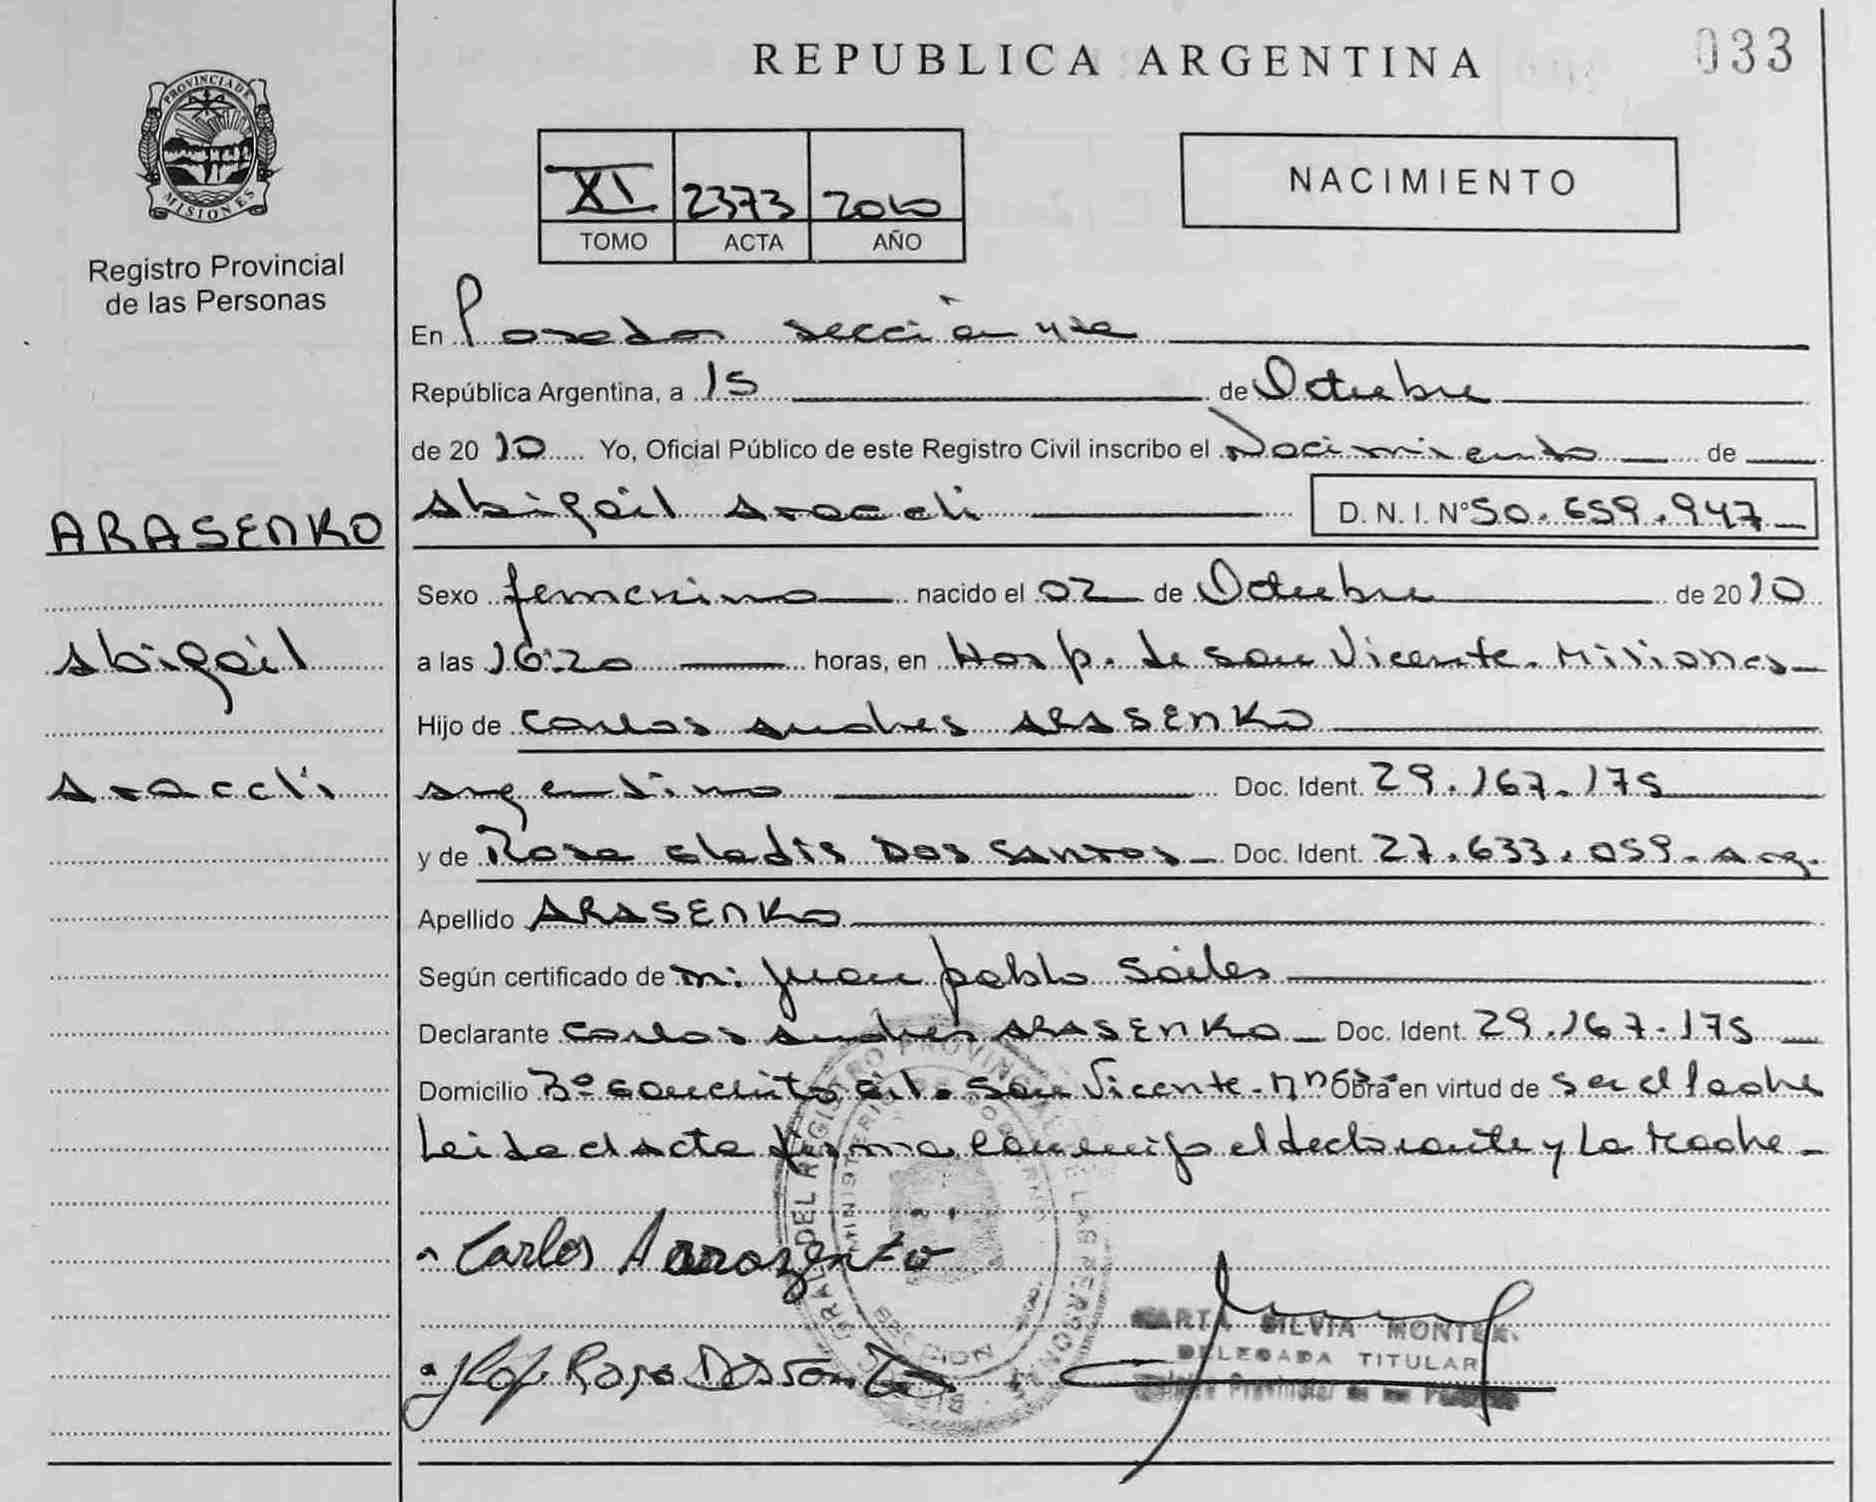 REPUBLICA ARGENTINA
033
PROVINCIA DE
MISIONES
Registro Provincial
de las Personas
XI 2373 2010
TOMO ACTA AÑO
NACIMIENTO
En Posadas sección 4ta
República Argentina, a 15 de Octubre
de 2010 Yo, Oficial Público de este Registro Civil inscribo el Nacimiento de
Abigail Araceli D. N. I. N° 50.659.947
ARASENKO
Abigail
Araceli
Sexo femenino nacido el 02 de Octubre de 2010
a las 16:20 horas, en Hosp. de San Vicente. Misiones
Hijo de Carlos Andres ARASENKO
argentino Doc. Ident. 29.167.175
y de Rosa Gladis DOS SANTOS Doc. Ident. 27.633.059. Arg.
Apellido ARASENKO
Según certificado de Juan pablo
Declarante Carlos Andres ARASENKO Doc. Ident. 29.167.175
Domicilio Bº San Vicente. Obra en virtud de ser el Padre
Leida el Acta firma conmigo el declarante y La Madre
Carlos
Rosa
SILVIA
DELEGADA TITULAR